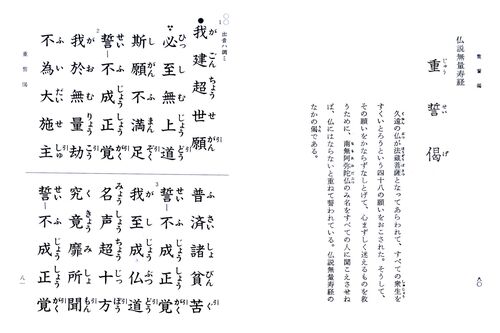 重誓偈
仏説無量寿経
重誓偈
久遠の仏が法蔵菩薩となってあらわれて、すべての衆生を
すくいとろうという四十八の願いをおこされた。そうして、
その願いをかならずなしとげて、心まずしく迷えるものを救
うために、南無阿弥陀仏のみ名をすべての人に聞こえさせね
ば、仏にはならないと重ねて誓われている。仏説無量寿経の
なかの偈である。
八〇
出音ハ調ミ
我建超世願
必至無上道
斯願不満足
誓不成正覚
我於無量劫
不為大施主
普済諸貧苦
誓不成正覚
我至成仏道
名声超十方
究竟靡所聞
誓不成正覚
重誓偈
八一